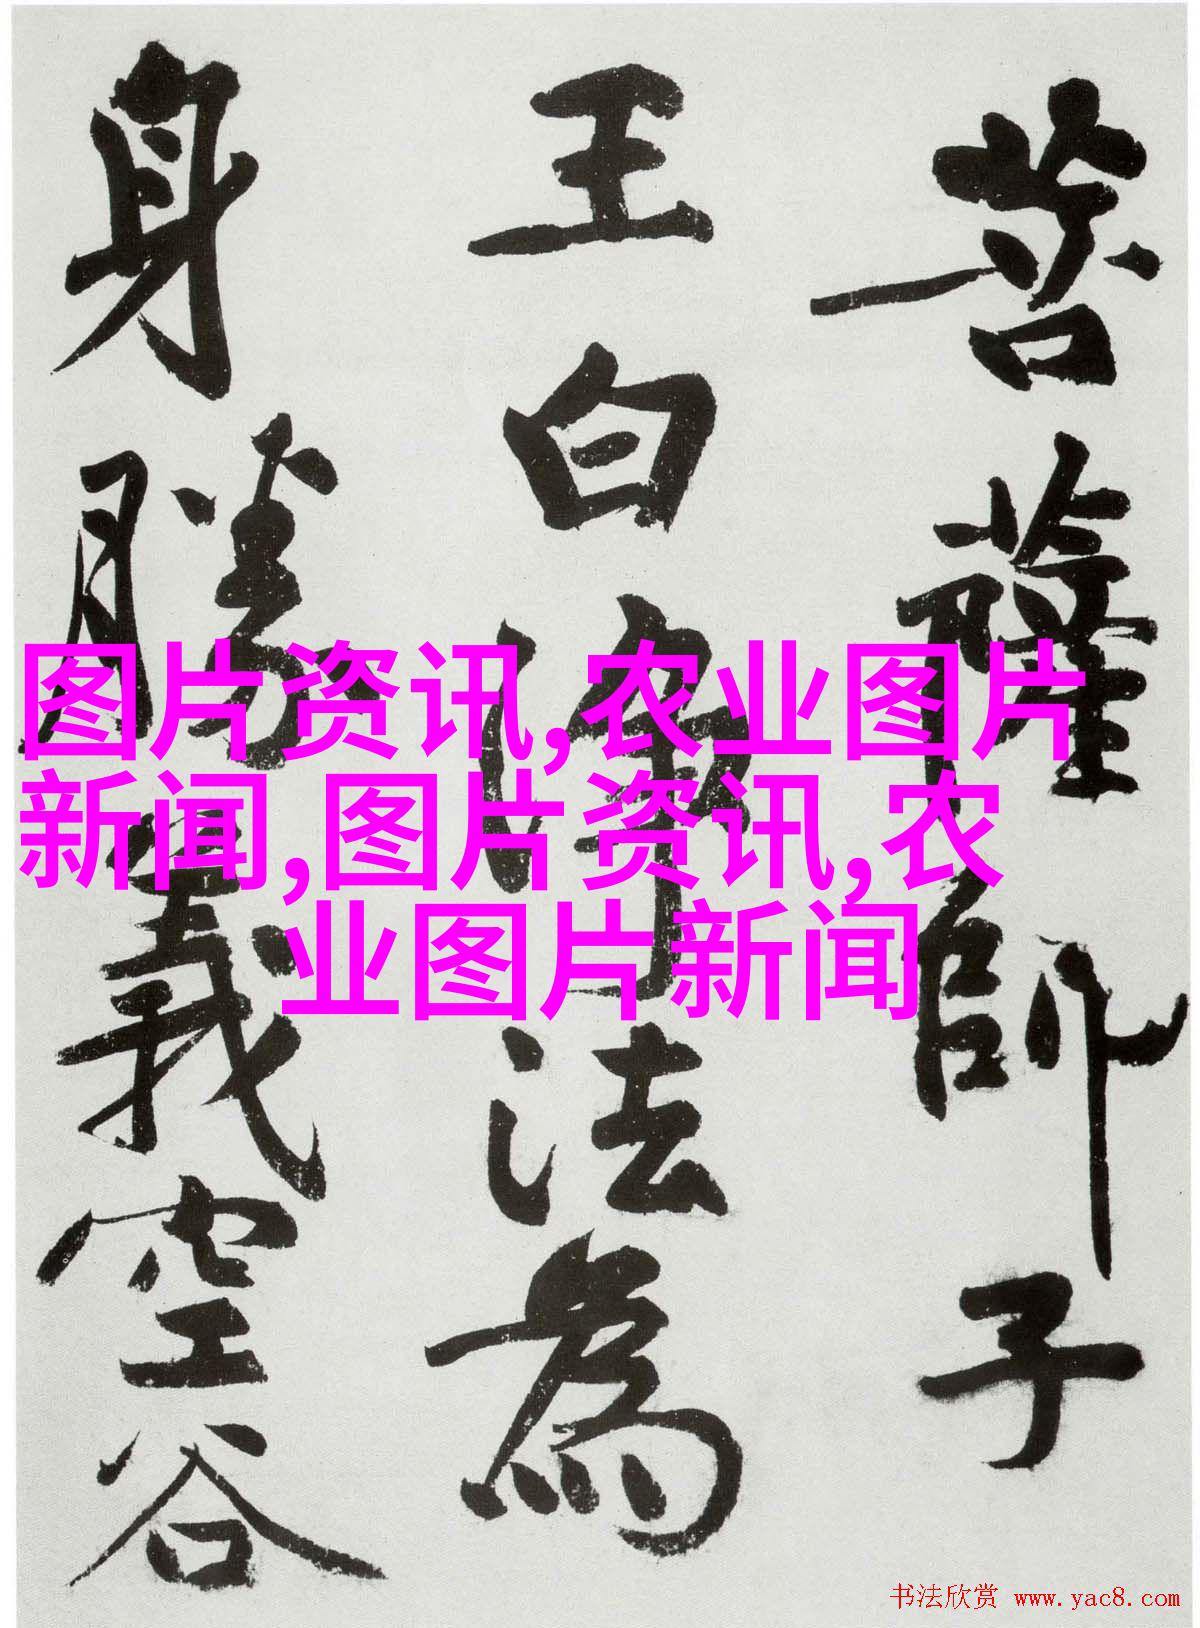 菩薩師子
王白淨法為
身勝義空谷
图片资讯,农业图片
新闻,图片资讯,农
业图片新闻
书法欣赏 www.yac8.com